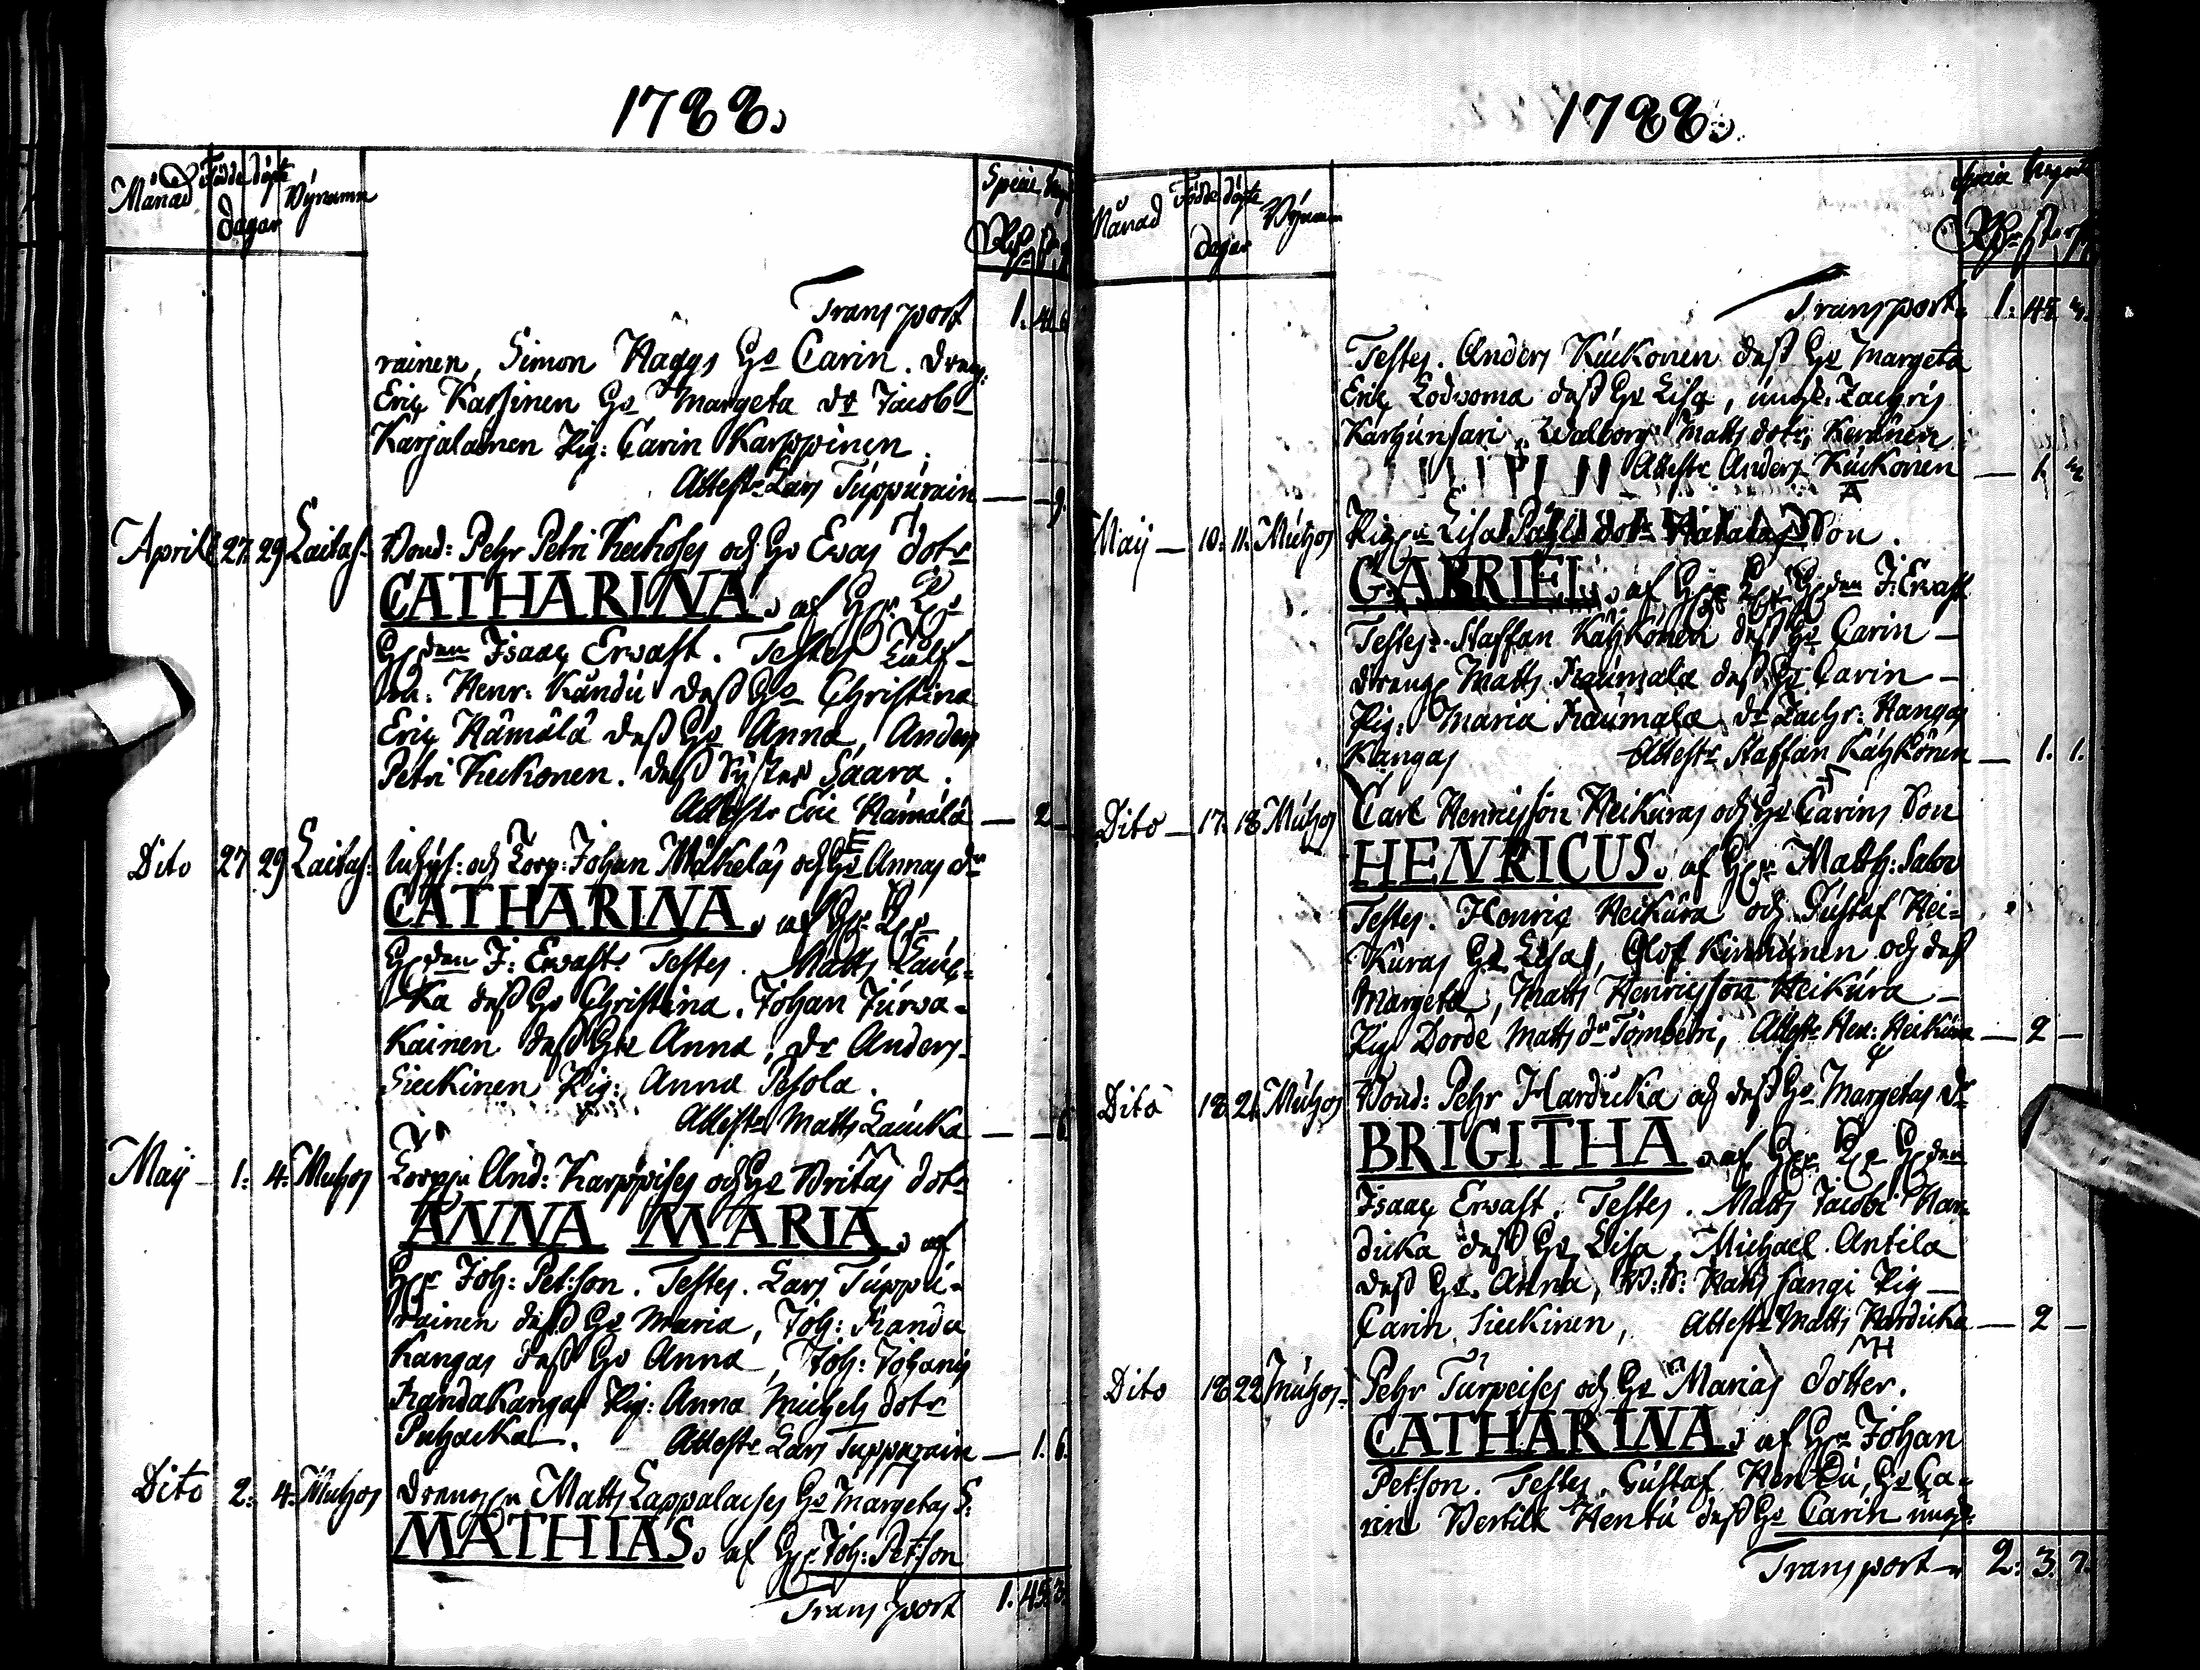 1788.
Månad Födde döpte Bÿnamn
dagar
Specie
Transport 1.
rainen, Simon Haggs Hu Carin. dreng:
Eric Karjinen Hu Margeta dr Jacob
Karjalainen Pig: Carin Karppinen.
Attestr Lars Tuppurain — 9.
Aprill 27. 29 Laitas- Bond: Pehr Petri Keckoses och Hu Evas dotr
CATHARINA. af Hr
Isaac Erwast. Testes
Henr: Kandu dess Hu Christina
Eric Hämälä dess Hu Anna, Anders
Petri Keckonen. dess Syster Saara.
Attestr Eric Hämälä — 2 —
Dito 27 29 Laitas- och Torp: Johan Mäkeläs och Hu Annas dr
CATHARINA. af Hr
J: Erwast. Testes. Matts Lauc-
ka dess Hu Christina. Johan Turwa-
kainen dess Hu Anna, dr Anders
Sieckinen Pig: Anna Pesola.
Attestr Matts Laucka — 6.
Maÿ — 1. 4. Muhos Torppu And: Karppises och Hu Britas dotr
ANNA MARIA. af
Hr Joh: Petson. Testes. Lars Tuppu-
rainen dess Hu Maria, Joh: Handu
kangas dess Hu Anna, Joh: Johans
Handakangas Pig: Anna Michels dotr
Puhacka. Attestr Lars Tuppurain — 1. 6.
Dito 2. 4. Muhos drengen Matts Lappalaises Hu Margetas S:
MATHIAS. af Hr Joh: Petson
Transport 1. 45. 3.
1788.
Månad Födde döpte Bÿnamn
dagar
Specie
Transport 1. 45. 3.
Testes. Anders Kuckonen dess Hu Margeta
Eric Lodwoma dess Hu Lisa, ungk. Zachris
Karhunsari, Walborg Matts dotr, Keränen
Attestr Anders Kuckonen
Maÿ — 10. 11. Muhos Pig: Lisa Påhls dotr Son.
GABRIEL. af J: Erwast
Testes. Staffan Kähkönen dess Hu Carin —
dreng Matts Raumala dess Hu Carin —
Pig: Maria Raumala dr Zachr: Hangas
Kangas Attestr Staffan Kähkönen — 1. 1.
Dito — 17. 18 Muhos Carl Henricsson Heikuras och Hu Carins Son
HENRICUS. af Hr Matth: Salov
Testes. Henric Heikura och Gustaf Hei-
kuras Hu Lisa, Olof Kinnunen och dess
Margeta, Matts Henricsson Heikura —
Pig Dorde Matts dr Tomberi, Attestr Hen: Heikura — 2 —
Dito 18 21. Muhos Bond: Pehr Harducka och dess Hu Margetas dr
BRIGITHA. af Hr
Isaac Erwast. Testes. Matts Jacobi Har-
ducka dess Hu Lisa, Michael Antila
dess Hu Anna, Matts Sangi Pig —
Carin Sieckinen, Attestr Matts Harducka — 2 —
Dito 18 22 Muhos- Pehr Turpeises och Hu Marias dotter.
CATHARINA. af Hr Johan
Petson. Testes. Gustaf Hendu, Hu Ca-
rin Bertill Hentu dess Hu Carin ungk:
Transport 2. 3. 7.